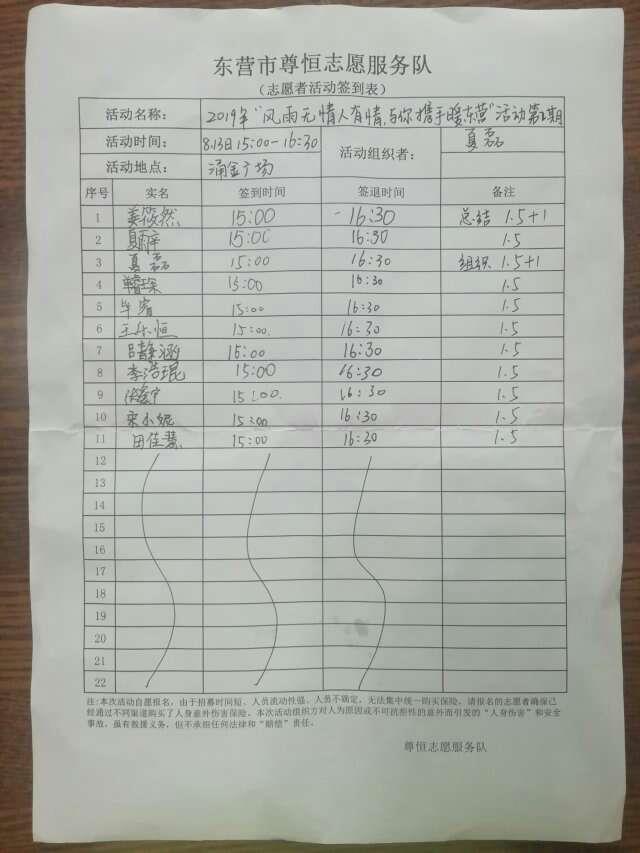 东营市尊恒志愿服务队
（志愿者活动签到表）
活动名称： 2019年“风雨无情人有情,与你携手暖东营”活动第 期
活动时间： 8.13日15:00-16:30 活动组织者： 夏磊
活动地点： 涌金广场
序号 实名 签到时间 签退时间 备注
1 姜筱然 15:00 -16:30 总结 1.5+1
2 15:00 16:30 1.5
3 夏磊 15:00 16:30 组织 1.5+1
4 15:00 16:30 1.5
5 毕睿 15:00 16:30 1.5
6 王乐恒 15:00. 16:30 1.5
7 吕静涵 15:00 16:30 1.5
8 李浩琨 15:00 16:30 1.5
9 15:00. 16:30 1.5
10 宋小妮 15:00 16:30 1.5
11 田佳慧 15:00 16:30 1.5
12
13
14
15
16
17
18
19
20
21
22
注:本次活动自愿报名，由于招募时间短、人员流动性强、人员不确定，无法集中统一购买保险，请报名的志愿者确保已
经通过不同渠道购买了人身意外伤害保险。本次活动组织方对人为原因或不可抗拒性的意外而引发的“人身伤害”和安全
事故，虽有救援义务，但不承担任何法律和“赔偿”责任。
尊恒志愿服务队